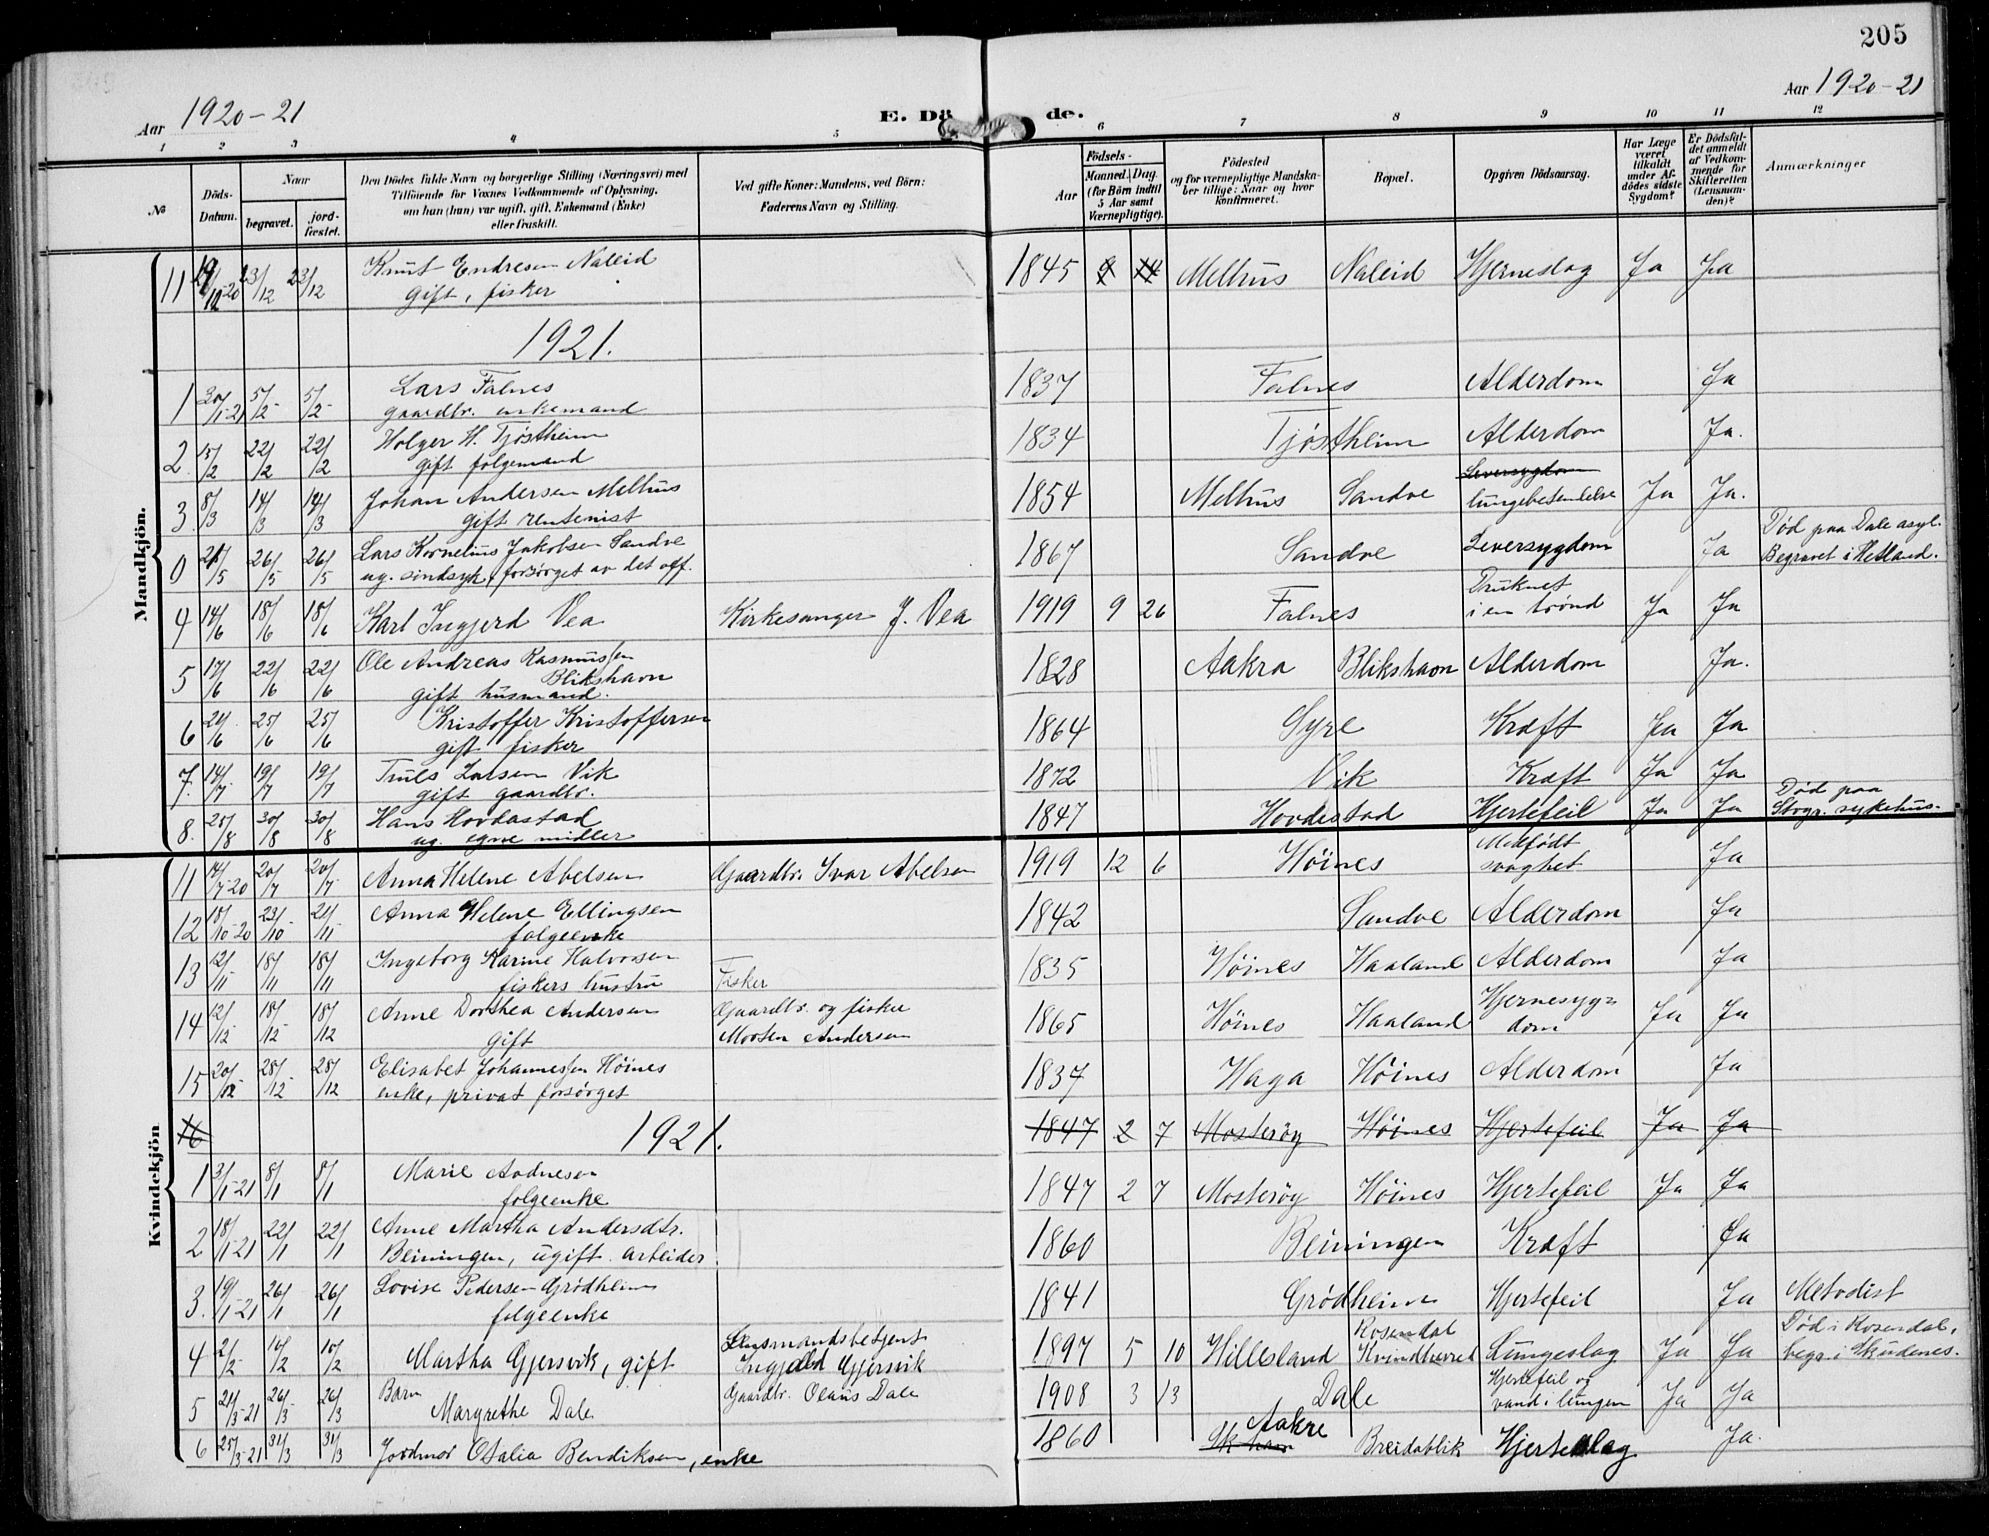 205
Aar 1920-21
E. Dö de.
Aar 1920-21
1 2 3 4 5 6 7 8 9 10 11 12
№
Döds-Datum.
Naar
begravet.
jord-fæstet.
Den Dödes fulde Navn og borgerlige Stilling (Næringsvei) med
Tilföiende for Voxnes Vedkommende af Oplysning,
om han (hun) var ugift, gift, Enkemand (Enke)
eller fraskilt.
Ved gifte Koner: Mandens, ved Börn:
Faderens Navn og Stilling.
Födsels-
Aar
Maaned. Dag.
(for Börn indtil
5 Aar samt
Værnepligtige).
Födested
og for værnepligtige Mandska-
ber tillige: Naar og hvor
konfirmeret.
Bopæl.
Opgiven Dödsaarsag.
Har Læge
været
tilkaldt
under Af-
dödes sidste
Sygdom?
Er Dödsfal-
det anmeldt
af Vedkom-
mende for
Skifteretten
(Lensman-
den)?
Anmærkninger
Mandkjön.
11 19/12-20 23/12 23/12 Knut Endresen Naleid 1845 Melhus Naleid Hjerneslag Ja Ja
gift, fisker
1921.
1 30/1-21 5/2 5/2 Lars Falnes 1837 Falnes Alderdom Ja
gaardbr. enkemand
2. 15/2 22/2 22/2 Holger H. Tjöstheim 1834 Tjöstheim Alderdom Ja.
gift folgemand
3. 8/3 14/3 14/3 Johan Andersen Melhus 1854 Melhus Sandve Leversygdom lungebetendelse Ja Ja.
gift rentenist
0 21/5 26/5 26/5 Lars Kornelius Jakobsen Sandve 1867 Sandve Leversygdom Ja Död paa Dale asyl.
ug. sindsyk, forsörget av det off. Begravet i Hetland.
4 14/6 18/6 18/6 Karl Ingjerd Vea Kirkesanger J. Vea 1919 9 26 Falnes Druknet i en brönd Ja Ja
5 17/6 22/6 22/6 Ole Andreas Rasmussen 1828 Aakra Blikshavn Alderdom Ja.
Blikshavn
gift husmand.
6 21/6 25/6 25/6 Kristoffer Kristoffersen 1864 Syre Kræft Ja Ja
gift fisker
7. 14/7 19/7 19/7 Truls Larsen Vik 1872 Vik Kræft Ja Ja
gift gaardbr.
8. 25/8 30/8 30/8 Hans Hovdastad 1847 Hovdestad Hjertefeil Ja Ja Död paa
ug. egne midler Stvgr. sykehus.
Kvindekjön
11 14/7-20 20/7 20/7 Anna Helene Abelsen Gaardbr. Ivar Abelsen 1919 12 6 Höines Medfödt svaghet Ja
12 18/10-20 23/10 21/11 Anna Helene Ellingsen 1842 Sandve Alderdom Ja
folgeenke
13 12/11 18/11 18/11 Ingeborg Karine Halvorsen Fisker 1835 Höines Haaland Alderdom Ja
fiskers hustru
14 12/12 18/12 18/12 Anne Dorthea Andersen Gaardbr. og fisker 1865 Höines Haaland Hjernesyg= Ja Ja
gift Morten Andersen dom
15 20/12 28/12 28/12 Elisabet Johannessen Höines 1837 Haga Höines Alderdom Ja
enke, privat forsörget
16 1921. 1847 2 7 Mosteröy Höines Hjertefeil Ja Ja
1 3/1-21 8/1 8/1 Marie Andnesen 1847 2 7 Mosteröy Höines Hjertefeil Ja Ja
folgeenke
2 18/1-21 22/1 22/1 Anne Martha Andersdtr. 1860 Beiningen Kræft Ja
Beiningen, ugift arbeider
3. 19/1-21 26/1 26/1 Lovise Pedersen Grödheim 1841 Grödheim Hjertefeil Ja Metodist
folgeenke
4 2/2 10/2 10/2 Martha Gjersvik, gift Lensmandsbetjent Ingjald Gjersvik 1897 5 10 Hillesland Rosendal Kvindherred Lungeslag Ja Ja Död i Rosendal,
begr. i Skudenes.
5 21/3-21 26/3 26/3 Barn Margrethe Dale Gaardbr. Olaus Dale 1908 3 13 Dale Hjertefeil og vand i lungen Ja Ja
6 25/3-21 31/3 31/3 Jordmor Otalia Bendiksen, enke 1860 Aakre Breidablik Hjerteslag Ja.